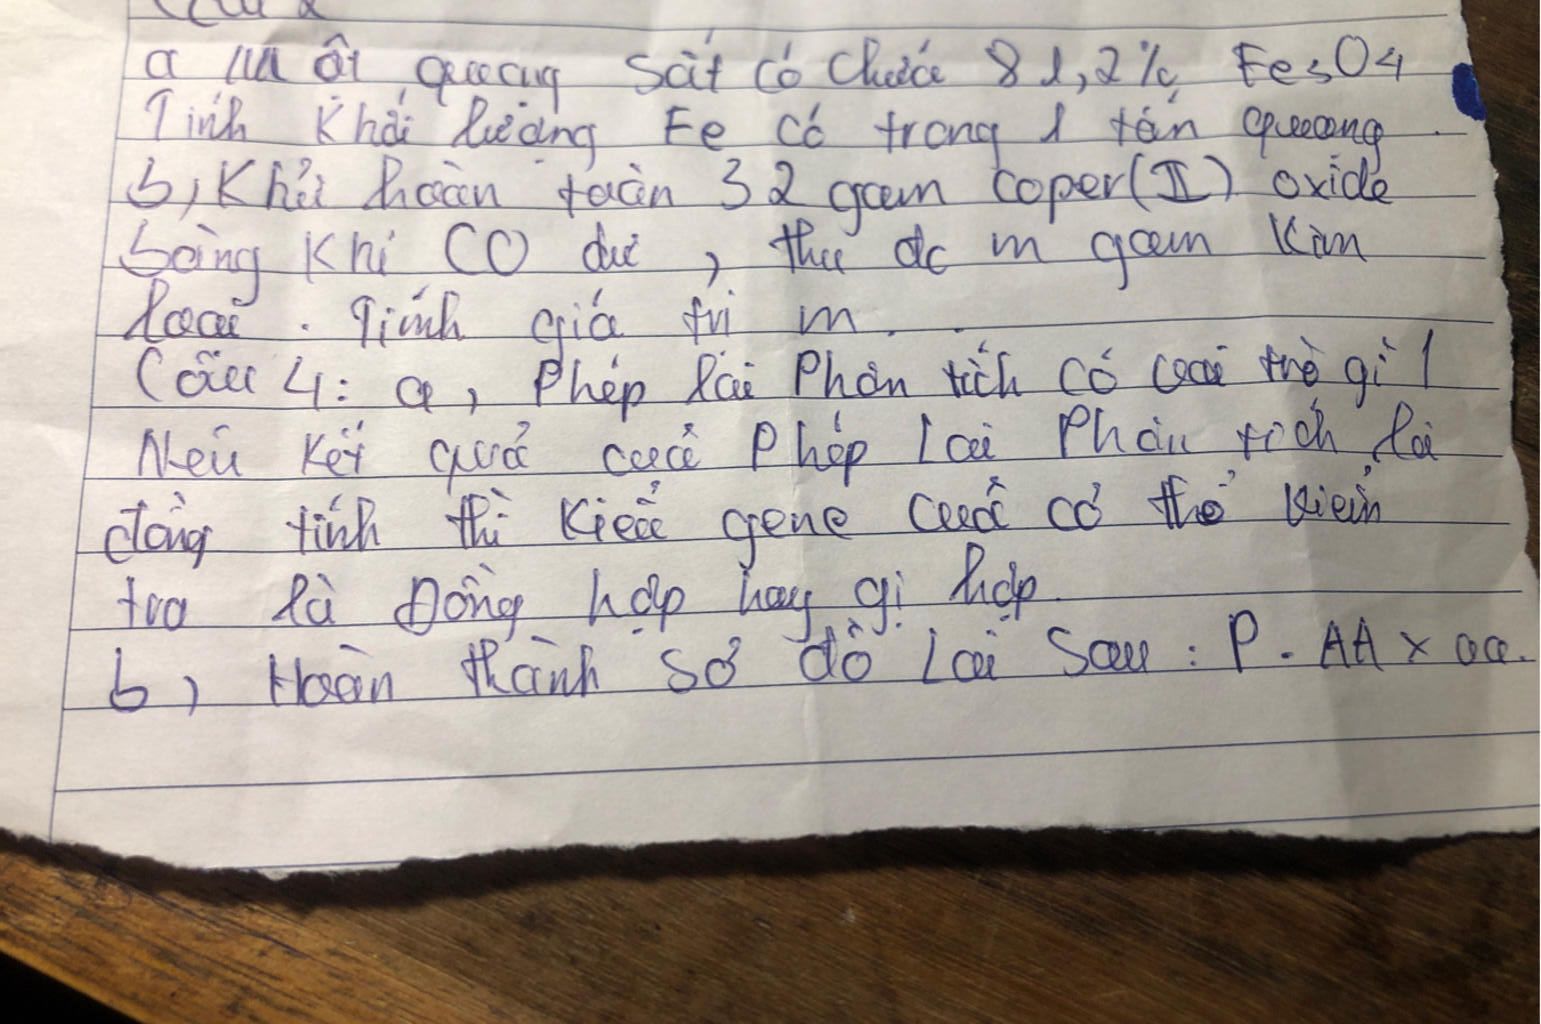 Câu 2
a Một quặng sắt có chứa 81,2% Fe3O4
Tính khối lượng Fe có trong 1 tấn quặng.
b, Khử hoàn toàn 32 gam coper(II) oxide
bằng khí CO dư, thu đc m gam kim
loại. Tính giá trị m.
Câu 4: a, Phép lai Phân tích có vai trò gì !
Nếu kết quả của Phép Lai Phân tích là
đồng tính thì kiểu gene của cơ thể kiểm
tra là Đồng hợp hay gị hợp.
b, Hoàn thành sơ đồ Lai Sau : P. AA x aa.